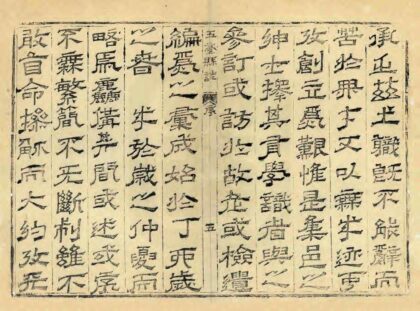 承乏茲土職既不能辭而
苦於才又以無迹可
攷創立爲艱惟是集邑之
紳士擇其有學識者與之
參訂或訪於故老或檢遺
五臺縣誌 序 五
編爲以彙成始於丁亥歲
之春 於歲之仲夏而
略爲麤備其間或述或
不無繁簡不无斷制雖不
敢自命操觚而大約攷